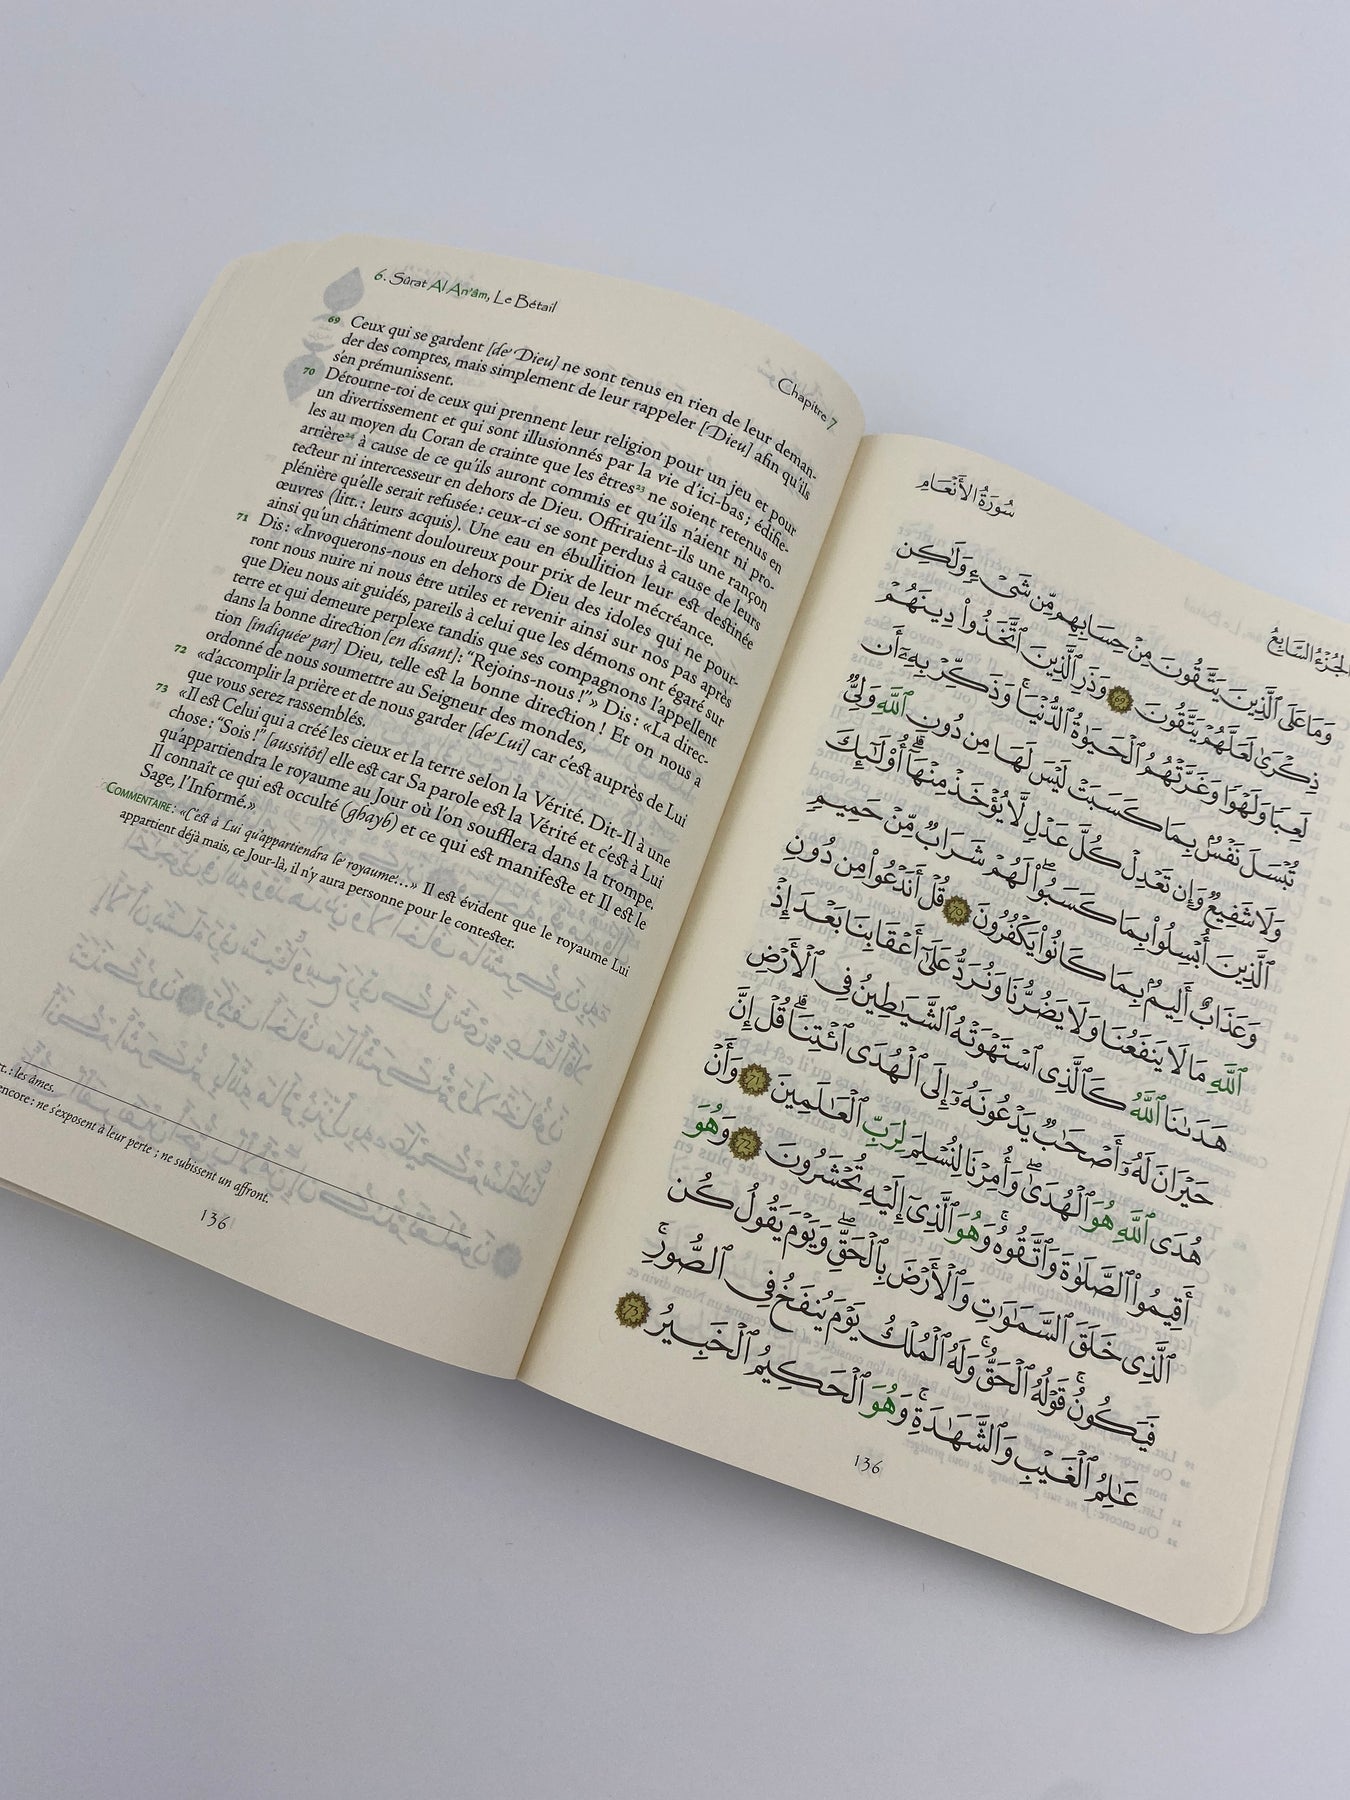 6. Sûrat Al An'âm, Le Bétail
Chapitre 7
69 Ceux qui se gardent [de Dieu] ne sont tenus en rien de leur deman-
der des comptes, mais simplement de leur rappeler [Dieu] afin qu'ils
s'en prémunissent.
70 Détourne-toi de ceux qui prennent leur religion pour un jeu et pour
un divertissement et qui sont illusionnés par la vie d'ici-bas ; édifie-
les au moyen du Coran de crainte que les êtres23 ne soient retenus en
arrière24 à cause de ce qu'ils auront commis et qu'ils n'aient ni pro-
tecteur ni intercesseur en dehors de Dieu. Offriraient-ils une rançon
plénière qu'elle serait refusée : ceux-ci se sont perdus à cause de leurs
œuvres (litt. : leurs acquis). Une eau en ébullition leur est destinée
ainsi qu'un châtiment douloureux pour prix de leur mécréance.
71 Dis : «Invoquerons-nous en dehors de Dieu des idoles qui ne pour-
ront nous nuire ni nous être utiles et revenir ainsi sur nos pas après
que Dieu nous ait guidés, pareils à celui que les démons ont égaré sur
terre et qui demeure perplexe tandis que ses compagnons l'appellent
dans la bonne direction [en disant] : “Rejoins-nous !”» Dis : «La direc-
tion [indiquée par] Dieu, telle est la bonne direction ! Et on nous a
ordonné de nous soumettre au Seigneur des mondes,
72 «d'accomplir la prière et de nous garder [de Lui] car c'est auprès de Lui
que vous serez rassemblés.
73 «Il est Celui qui a créé les cieux et la terre selon la Vérité. Dit-Il à une
chose : “Sois !” [aussitôt] elle est car Sa parole est la Vérité et c'est à Lui
qu'appartiendra le royaume au Jour où l'on soufflera dans la trompe.
Il connaît ce qui est occulté (ghayb) et ce qui est manifeste et Il est le
Sage, l'Informé.»
COMMENTAIRE : «C'est à Lui qu'appartiendra le royaume…» Il est évident que le royaume Lui
appartient déjà mais, ce Jour-là, il n'y aura personne pour le contester.
rt. : les âmes.
encore : ne s'exposent à leur perte ; ne subissent un affront.
136
سُورَةُ الأَنْعَامِ
الجُزْءُ السَّابِعُ
وَمَا عَلَى ٱلَّذِينَ يَتَّقُونَ مِنْ حِسَابِهِم مِّن شَيْءٍ وَلَٰكِن
ذِكْرَىٰ لَعَلَّهُمْ يَتَّقُونَ ٦٩ وَذَرِ ٱلَّذِينَ ٱتَّخَذُوا۟ دِينَهُمْ
لَعِبًا وَلَهْوًا وَغَرَّتْهُمُ ٱلْحَيَوٰةُ ٱلدُّنْيَا ۚ وَذَكِّرْ بِهِۦٓ أَن
تُبْسَلَ نَفْسٌۢ بِمَا كَسَبَتْ لَيْسَ لَهَا مِن دُونِ ٱللَّهِ وَلِىٌّ
وَلَا شَفِيعٌ وَإِن تَعْدِلْ كُلَّ عَدْلٍ لَّا يُؤْخَذْ مِنْهَآ ۗ أُو۟لَٰٓئِكَ
ٱلَّذِينَ أُبْسِلُوا۟ بِمَا كَسَبُوا۟ ۖ لَهُمْ شَرَابٌ مِّنْ حَمِيمٍ
وَعَذَابٌ أَلِيمٌۢ بِمَا كَانُوا۟ يَكْفُرُونَ ٧٠ قُلْ أَنَدْعُوا۟ مِن دُونِ
ٱللَّهِ مَا لَا يَنفَعُنَا وَلَا يَضُرُّنَا وَنُرَدُّ عَلَىٰٓ أَعْقَابِنَا بَعْدَ إِذْ
هَدَىٰنَا ٱللَّهُ كَٱلَّذِى ٱسْتَهْوَتْهُ ٱلشَّيَٰطِينُ فِى ٱلْأَرْضِ
حَيْرَانَ لَهُۥٓ أَصْحَٰبٌ يَدْعُونَهُۥٓ إِلَى ٱلْهُدَى ٱئْتِنَا ۗ قُلْ إِنَّ
هُدَى ٱللَّهِ هُوَ ٱلْهُدَىٰ ۖ وَأُمِرْنَا لِنُسْلِمَ لِرَبِّ ٱلْعَٰلَمِينَ ٧١ وَأَنْ
أَقِيمُوا۟ ٱلصَّلَوٰةَ وَٱتَّقُوهُ ۚ وَهُوَ ٱلَّذِىٓ إِلَيْهِ تُحْشَرُونَ ٧٢ وَهُوَ
ٱلَّذِى خَلَقَ ٱلسَّمَٰوَٰتِ وَٱلْأَرْضَ بِٱلْحَقِّ ۖ وَيَوْمَ يَقُولُ كُن
فَيَكُونُ ۚ قَوْلُهُ ٱلْحَقُّ ۚ وَلَهُ ٱلْمُلْكُ يَوْمَ يُنفَخُ فِى ٱلصُّورِ ۚ
عَٰلِمُ ٱلْغَيْبِ وَٱلشَّهَٰدَةِ ۚ وَهُوَ ٱلْحَكِيمُ ٱلْخَبِيرُ ٧٣
136